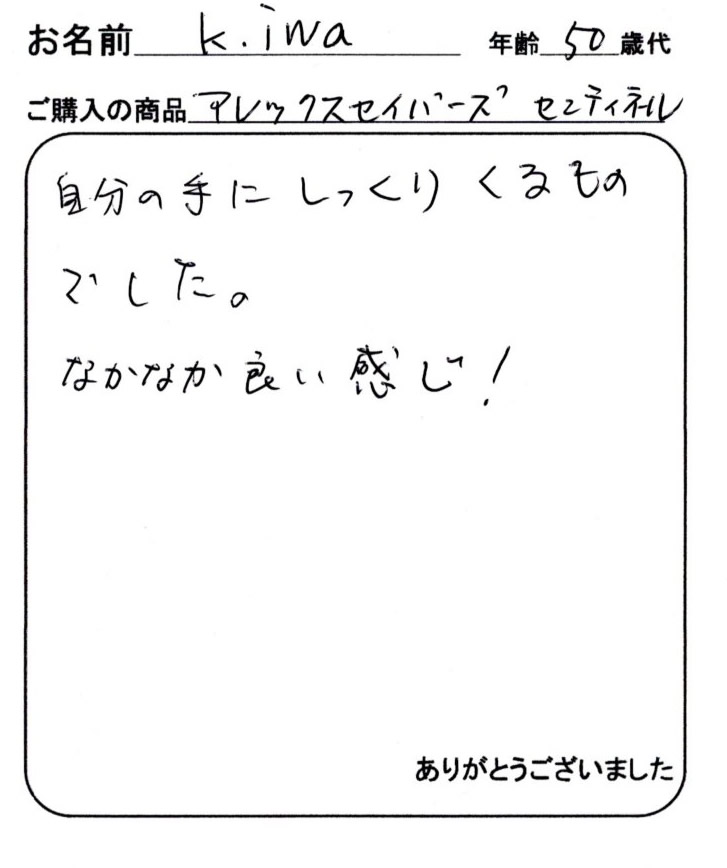 お名前 k.iwa 年齢 50 歳代
ご購入の商品 アレックスセイバーズ センティネル
自分の手にしっくりくるもの
でした。
なかなか良い感じ!
ありがとうございました